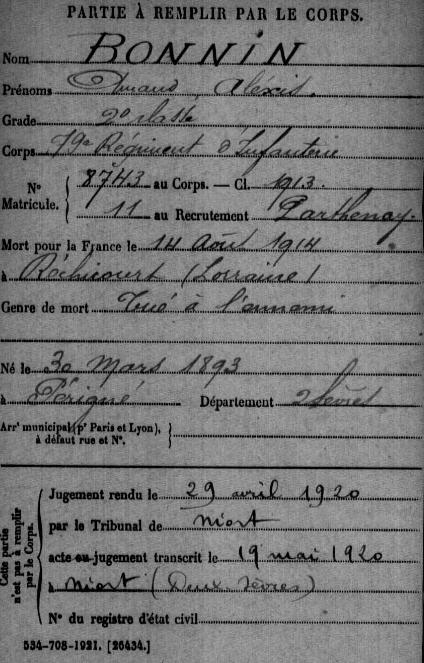 PARTIE À REMPLIR PAR LE CORPS.
Nom BONNIN
Prénoms Amand, Alexis.
Grade 2e classe
Corps 79e Régiment d'Infanterie
N° Matricule. { 8743 au Corps. — Cl. 1913.
11 au Recrutement Parthenay.
Mort pour la France le 14 Août 1914
à Réchicourt (Lorraine)
Genre de mort Tué à l'ennemi
Né le 30 Mars 1893
à Périgné Département 2 Sèvres
Arrt municipal (pr Paris et Lyon), à défaut rue et N°. }
Cette partie n'est pas à remplir par le Corps.
Jugement rendu le 29 avril 1920
par le Tribunal de Niort
acte ou jugement transcrit le 19 mai 1920
à Niort (Deux Sèvres)
N° du registre d'état civil
534-708-1921. [26434.]